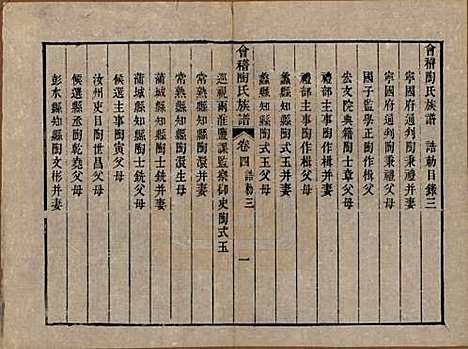 會稽陶氏族譜　誥勅目錄三
寧國府通判陶秉禮并妻
寧國府通判陶秉禮父母
國子監學正陶作楫父
宏文院典籍陶士章父母
禮部主事陶作楫并妻
禮部主事陶作楫父母
蠡縣知縣陶式玉并妻
蠡縣知縣陶式玉父母
會稽陶氏族譜　卷四　誥勅三　一
巡視兩淮鹽課監察御史陶式玉
常熟縣知縣陶澴生并妻
常熟縣知縣陶澴生父母
蒲城縣知縣陶士銑并妻
蒲城縣知縣陶士銑父母
候選主事陶寅父母
汝州吏目陶世昌父母
候選縣丞陶乾堯父母
彭水縣知縣陶文彬并妻